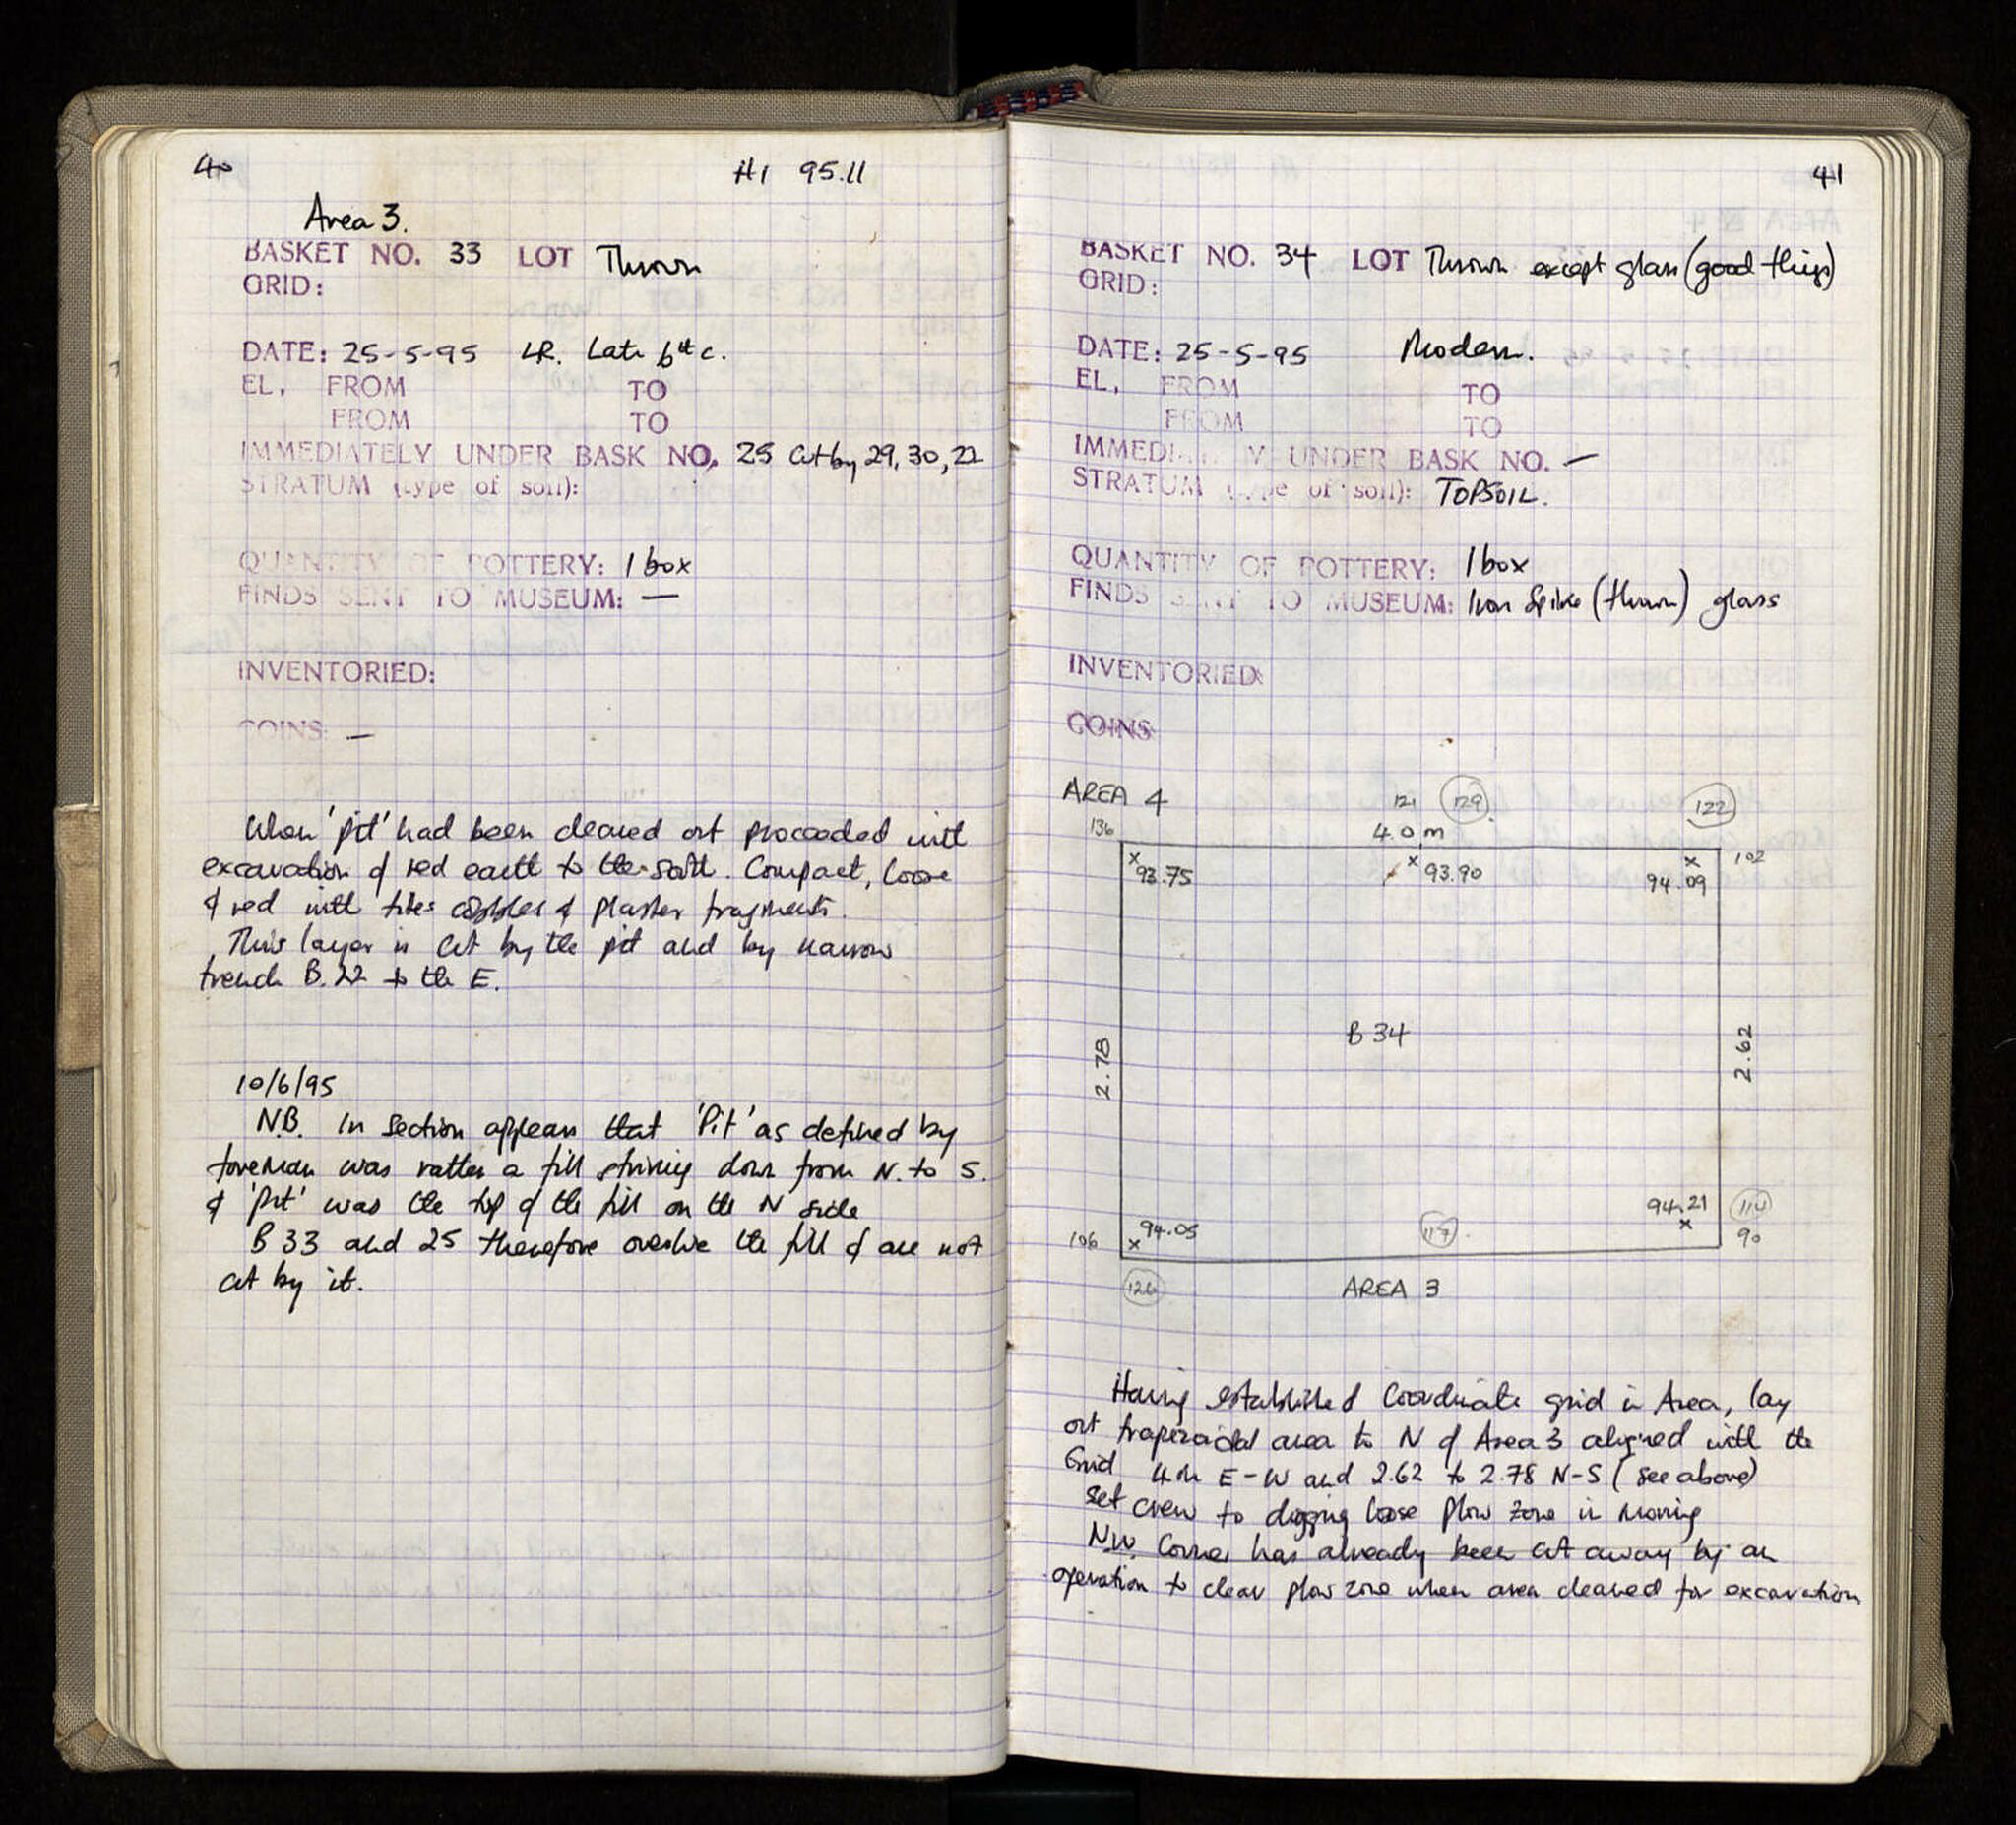 40
H1 95.11
Area 3.
BASKET NO. 33 LOT Thrown
GRID:
DATE: 25-5-95 LR. Late 6th c.
EL, FROM TO
FROM TO
IMMEDIATELY UNDER BASK NO. 25 Cut by 29, 30, 22
STRATUM (type of soil):
QUANTITY OF POTTERY: 1 box
FINDS SENT TO MUSEUM: —
INVENTORIED:
COINS: —
When 'pit' had been cleared out proceeded with
excavation of red earth to the south. Compact, loose
& red with tiles cobbles & plaster fragments.
This layer is cut by the pit and by narrow
trench B.22 to the E.
10/6/95
N.B. In section appears that 'Pit' as defined by
foreman was rather a fill down from N. to S.
& 'pit' was the top of the fill on the N side
B 33 and 25 therefore overlie the fill & are not
cut by it.
41
BASKET NO. 34 LOT Thrown except glass (good things)
GRID:
DATE: 25-5-95 Modern.
EL, FROM TO
FROM TO
IMMEDIATELY UNDER BASK NO. —
STRATUM (type of soil): TOPSOIL.
QUANTITY OF POTTERY: 1 box
FINDS SENT TO MUSEUM: Iron Spike (thrown) glass
INVENTORIED:
COINS
AREA 4
121 129 122
136 4.0 m
x 93.75 x 93.90 x 94.09 102
B 34
2.78
2.62
106 x 94.05 117 94.21 x 114
90
126 AREA 3
Having established Coordinate grid in Area, lay
out trapezoidal area to N of Area 3 aligned with the
Grid 4m E-W and 2.62 to 2.78 N-S (see above)
Set crew to digging loose plow zone in morning
NW. Corner has already been cut away by an
operation to clear plow zone when area cleared for excavation